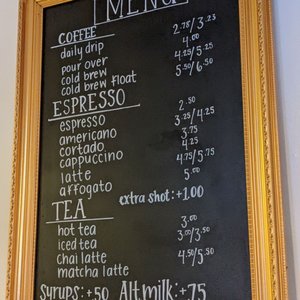 MENU
COFFEE
daily drip 2.75/3.25
pour over 4.00
cold brew 4.25/5.25
cold brew float 5.50/6.50
ESPRESSO
espresso 2.50
americano 3.25/4.25
cortado 3.75
cappuccino 4.25
latte 4.75/5.75
affogato 5.00
extra shot: +1.00
TEA
hot tea 3.00
iced tea 3.00/3.50
chai latte 4.50/5.50
matcha latte
syrups: +.50 Alt milk: +.75